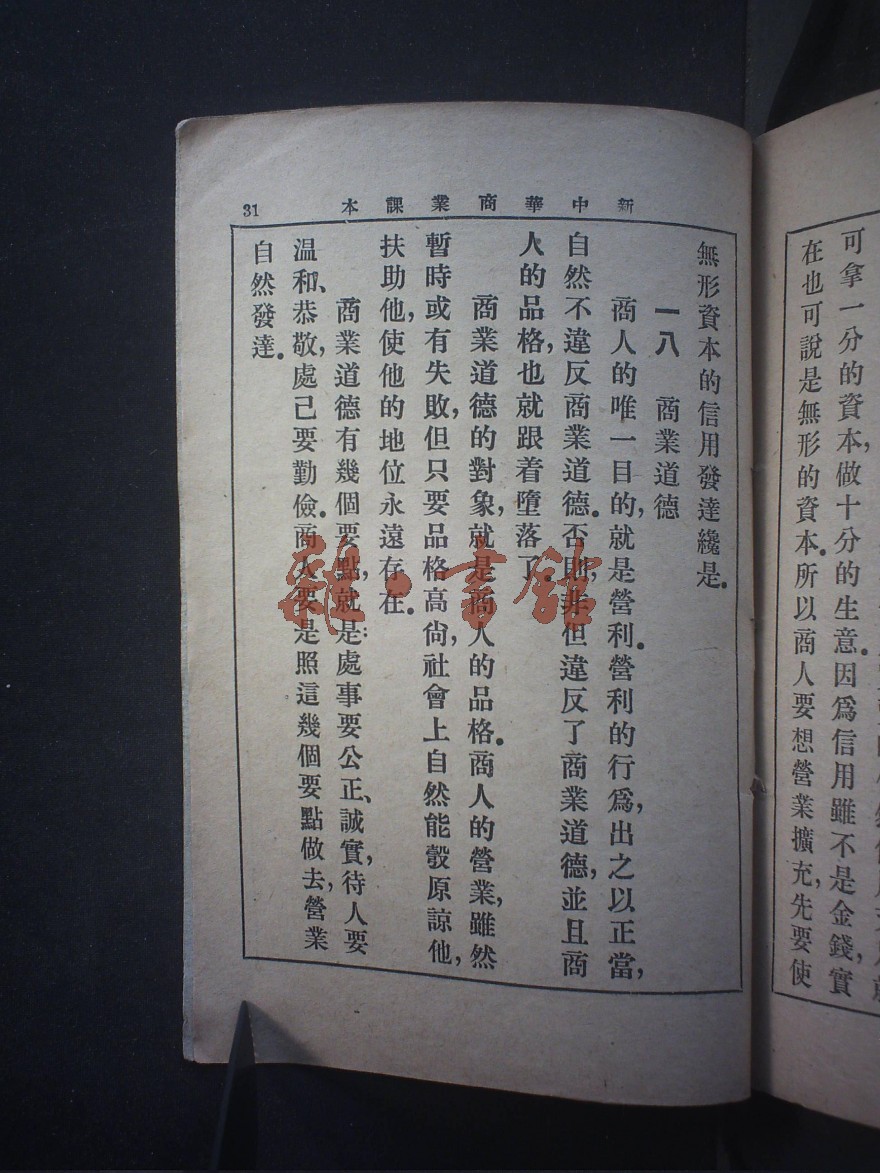 可拿一分的資本，做十分的生意。因爲信用雖不是金錢，實
在也可說是無形的資本。所以商人要想營業擴充，先要使
新中華商業課本
31
無形資本的信用發達纔是。
一八　商業道德
商人的唯一目的，就是營利。營利的行爲，出之以正當，
自然不違反商業道德。否則，非但違反了商業道德，並且商
人的品格，也就跟着墮落了。
商業道德的對象，就是商人的品格。商人的營業，雖然
暫時或有失敗，但只要品格高尙，社會上自然能彀原諒他，
扶助他，使他的地位永遠存在。
商業道德有幾個要點，就是：處事要公正、誠實，待人要
温和、恭敬，處己要勤儉。商人要是照這幾個要點做去，營業
自然發達。
雜·書館